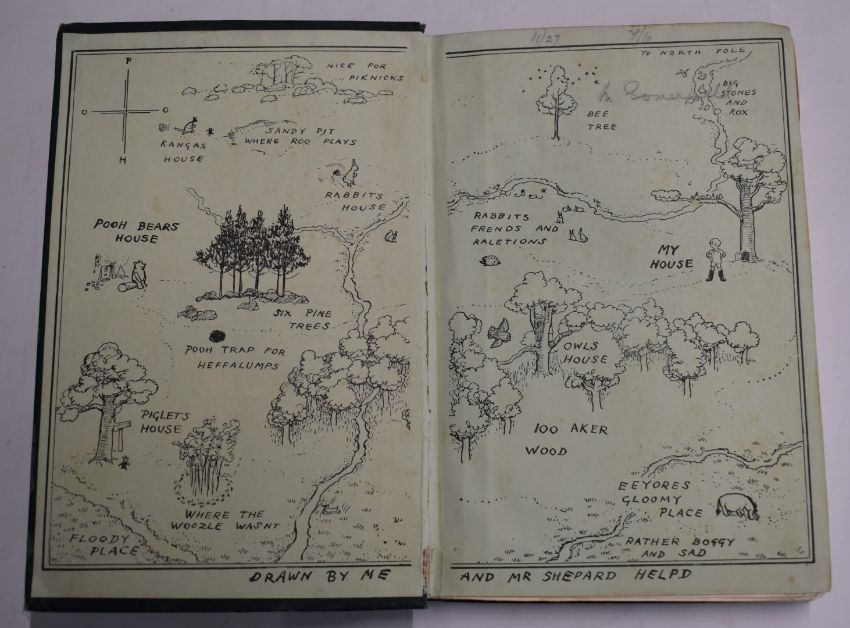 P
O O
H
NICE FOR
PIKNICKS
KANGAS
HOUSE
SANDY PIT
WHERE ROO PLAYS
RABBITS
HOUSE
POOH BEARS
HOUSE
SIX PINE
TREES
POOH TRAP FOR
HEFFALUMPS
PIGLETS
HOUSE
WHERE THE
WOOZLE WASNT
FLOODY
PLACE
DRAWN BY ME
11/27
7/6
TO NORTH POLE
BIG
STONES
AND
ROX
BEE
TREE
RABBITS
FRENDS AND
RALETIONS
MY
HOUSE
OWLS
HOUSE
100 AKER
WOOD
EEYORES
GLOOMY
PLACE
RATHER BOGGY
AND SAD
AND MR SHEPARD HELPD